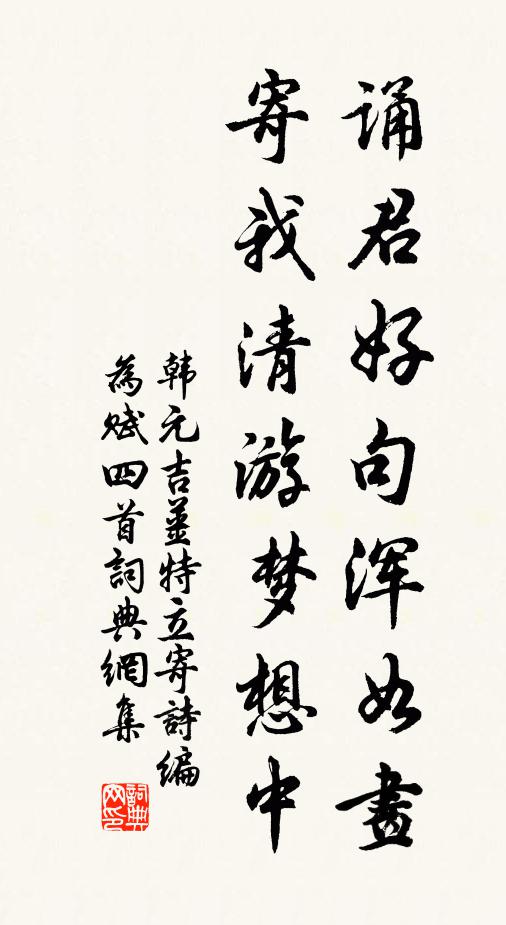 诵君好句浑如畫
寄我清游梦想中
韩元吉薑特立寄詩编
為赋四首詞典網集
詞典網印